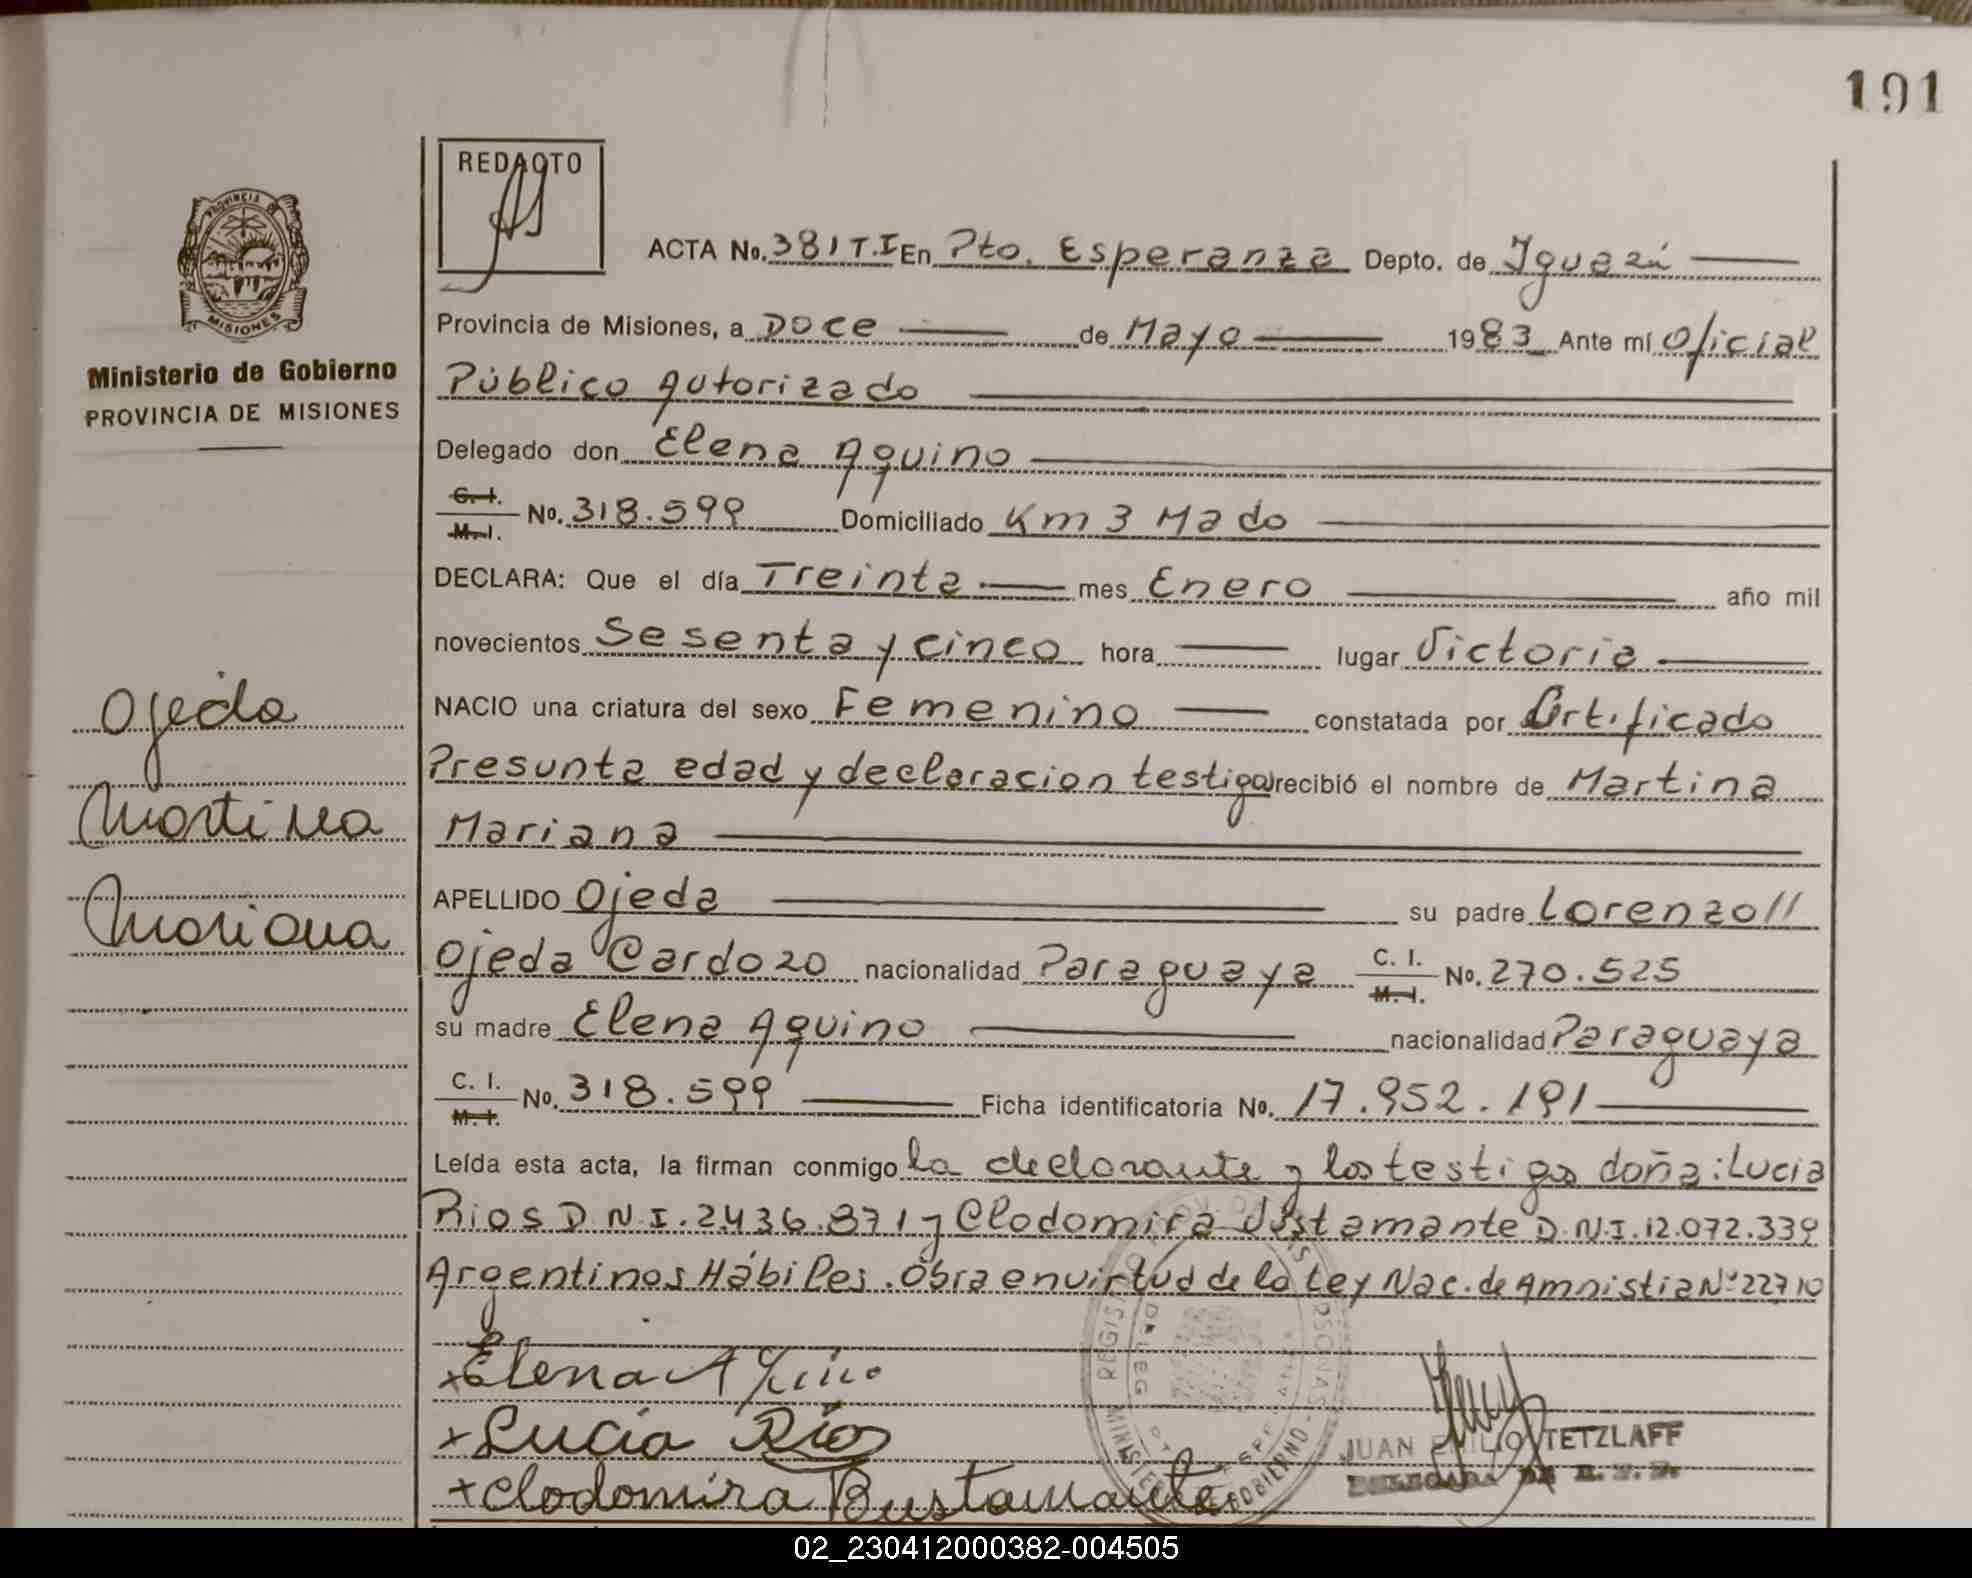 191
REDACTO
PROVINCIA DE
MISIONES
Ministerio de Gobierno
PROVINCIA DE MISIONES
Ojeda
Martina
Mariana
ACTA No. 381 T.I En Pto. Esperanza Depto. de Iguazú
Provincia de Misiones, a Doce de Mayo 1983 Ante mí Oficial
Público Autorizado
Delegado don Elena Aquino
C.I. M.I. No. 318.599 Domiciliado Km 3 Mado
DECLARA: Que el día Treinta mes Enero año mil
novecientos Sesenta y cinco hora lugar Victoria
NACIO una criatura del sexo Femenino constatada por Certificado
Presunta edad y declaracion testigos recibió el nombre de Martina
Mariana
APELLIDO Ojeda su padre Lorenzo//
Ojeda Cardozo nacionalidad Paraguaya C. I. M. I. No. 270.525
su madre Elena Aquino nacionalidad Paraguaya
C. I. M. I. No. 318.599 Ficha identificatoria No. 17.952.191
Leída esta acta, la firman conmigo la declarante y los testigos doña: Lucia
Rios D.N.I. 2.436.871 y Clodomira Bustamante D.N.I. 12.072.339
Argentinos Hábiles. Obra en virtud de la Ley Nac. de Amnistia Nº 22710
x Elena Aquino
x Lucia Rios
x Clodomira Bustamante
JUAN EMILIO TETZLAFF
02_230412000382-004505